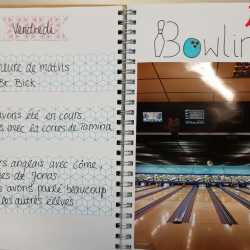 Vendredi
heure de maths
Mr. Bick
avons été en cours
avec les corres de Tamina
anglais avec Côme
de Jonas
avons parlé beaucoup
autres élèves
Bowlin